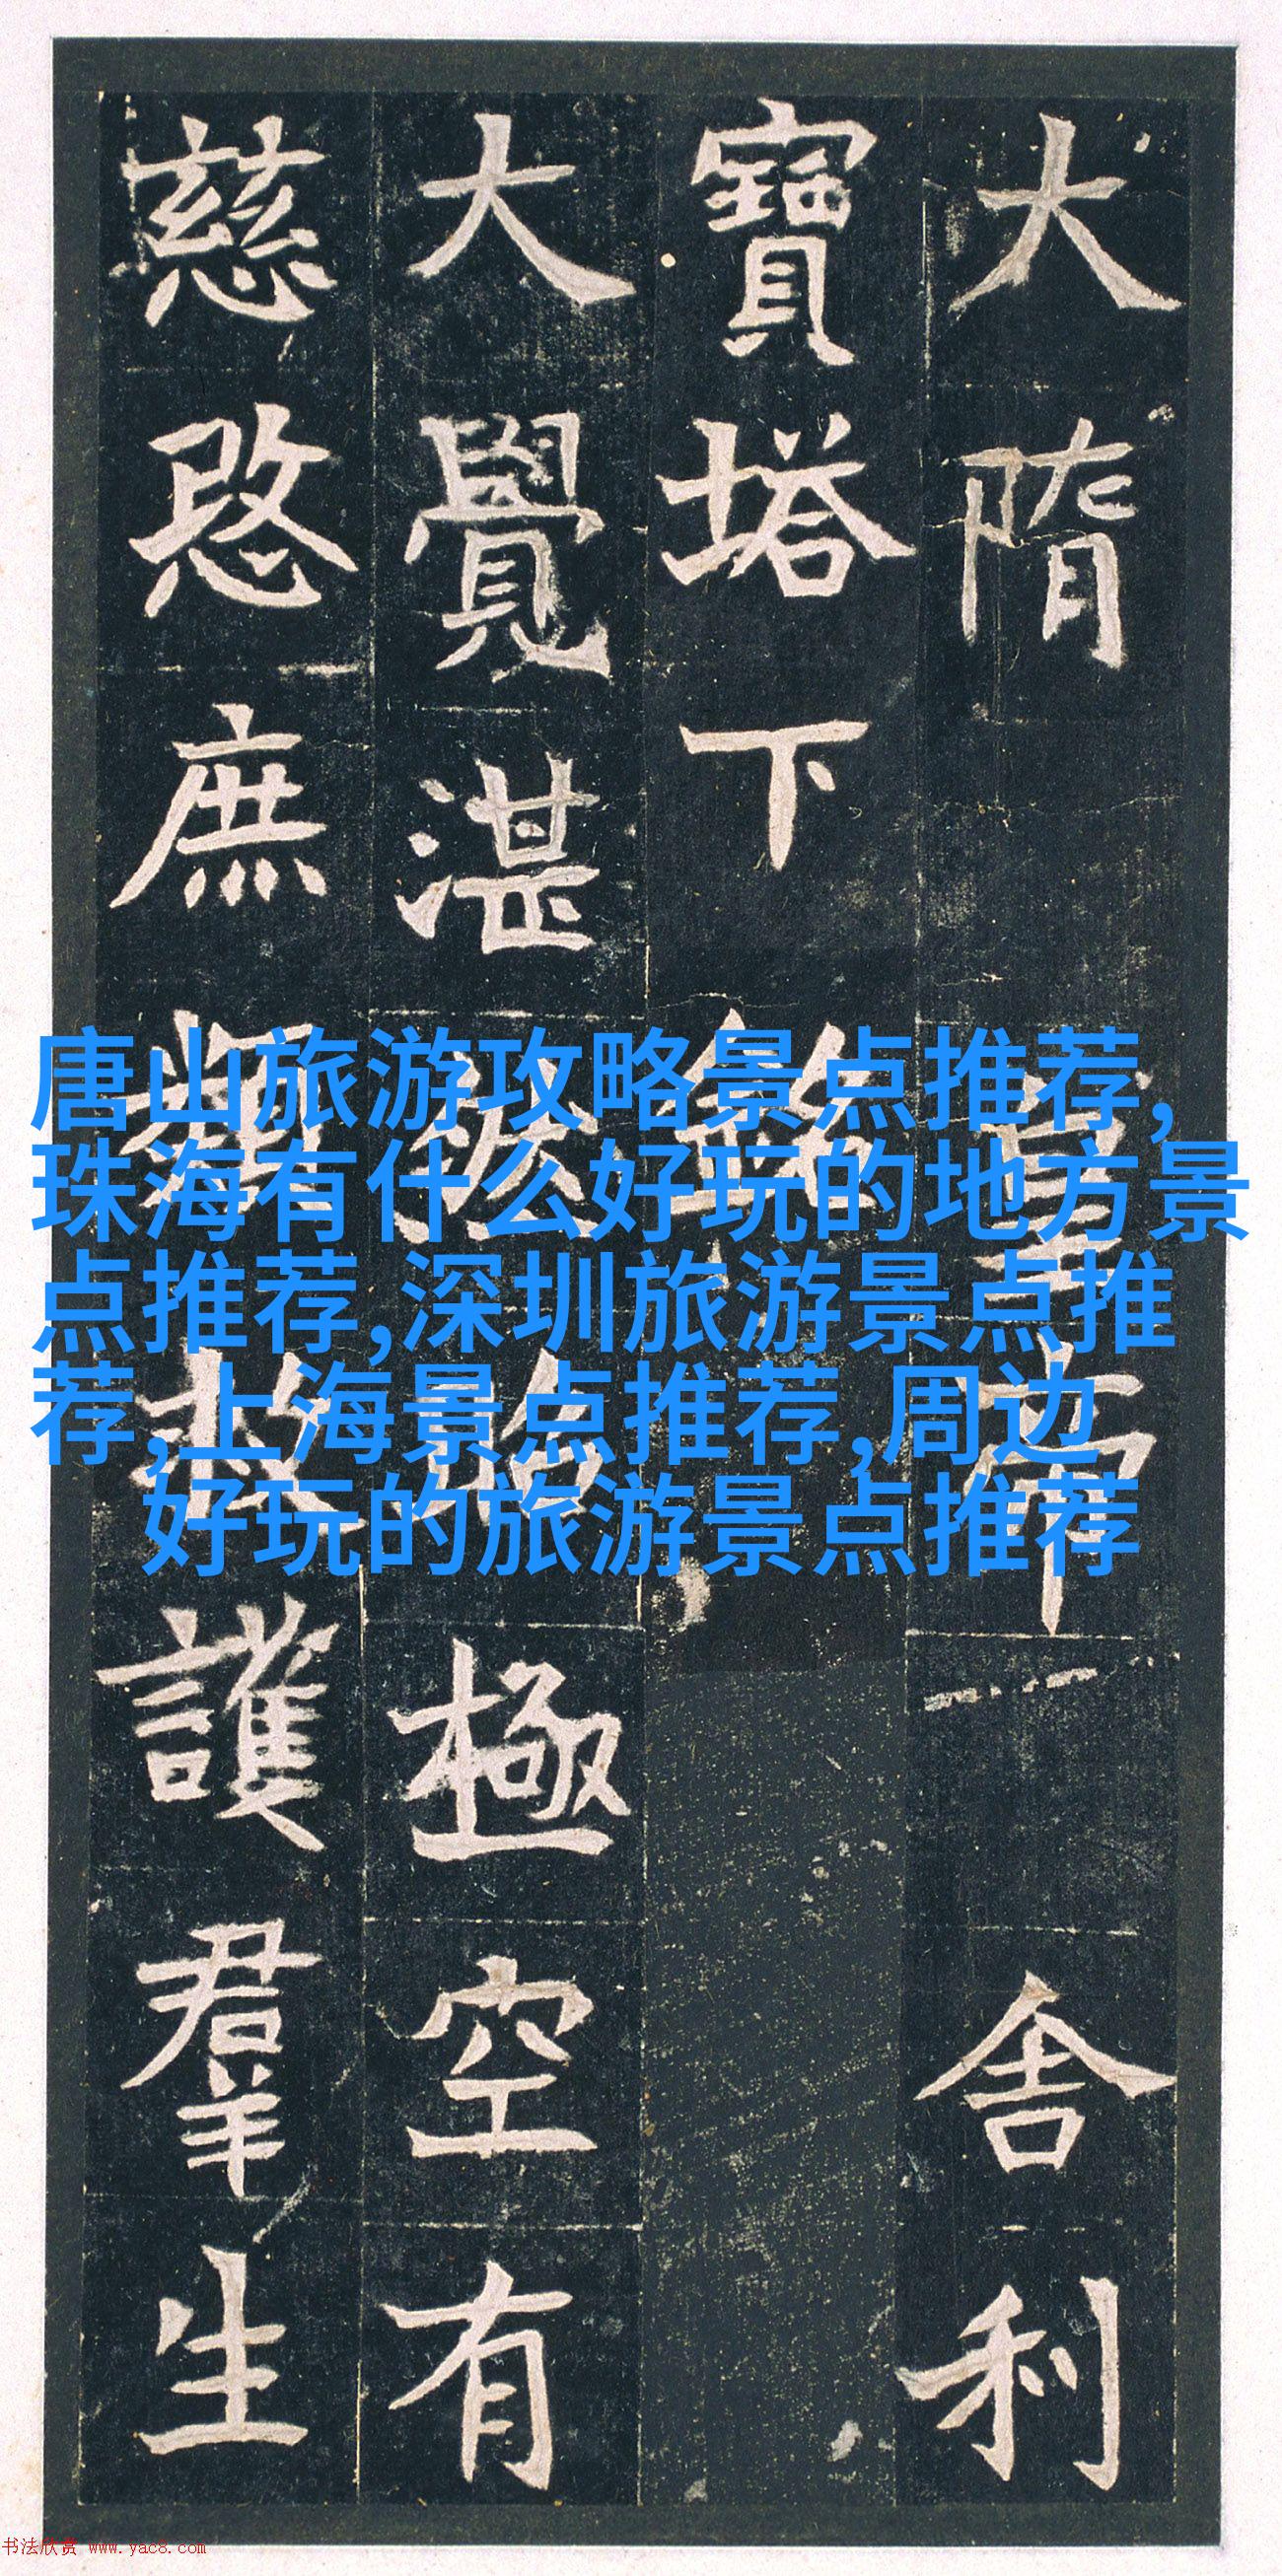 大隋皇帝舍利
寶塔下銘
大覺湛然昭極空有
慈愍庶類救護羣生
唐山旅游攻略景点推荐,
珠海有什么好玩的地方景
点推荐,深圳旅游景点推
荐,上海景点推荐,周边
好玩的旅游景点推荐
书法欣赏 www.yac8.com